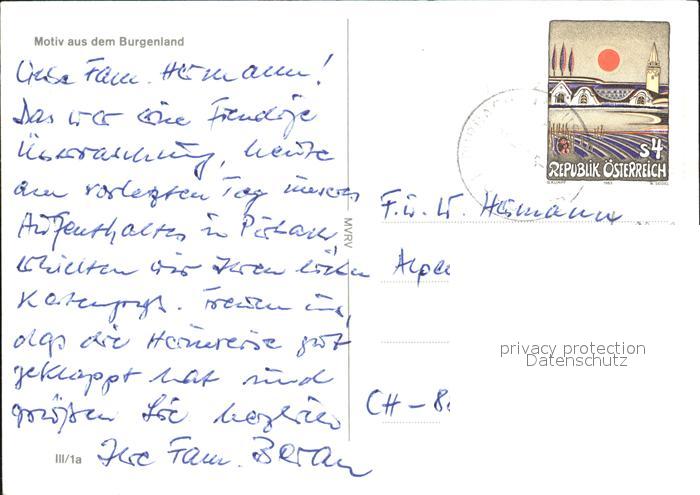 Motiv aus dem Burgenland
Liebe Fam. Hörmann!
Das war eine freudige
Überraschung, heute
am vorletzten Tag unseres
Aufenthaltes in
erhielten wir Ihren lieben
Kartengruß. Freuen uns,
daß die Heimreise gut
geklappt hat und
grüßen Sie herzlich
Ihre Fam. Beran
III/1a
MVRV
S4
REPUBLIK ÖSTERREICH
1983
F. u. W. Hörmann
Alpe
CH - 8
privacy protection
Datenschutz